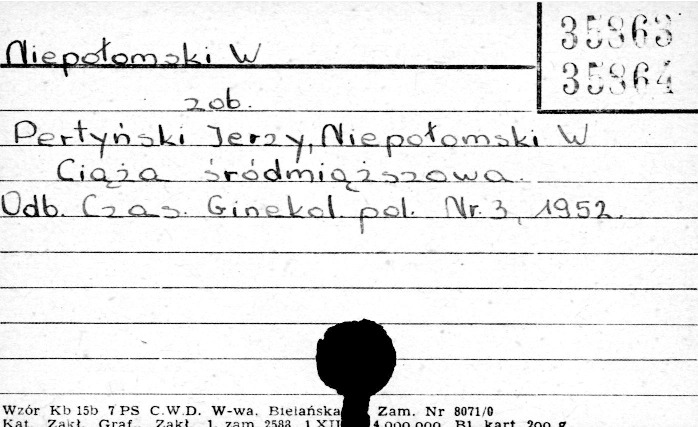 35863
35864
Niepołomski W
zob.
Pertyński Jerzy, Niepołomski W
Ciąża śródmiąższowa.
Odb. Czas. Ginekol. pol. Nr. 3, 1952.
Wzór Kb 15b 7 PS C.W.D. W-wa. Bielańska Zam. Nr 8071/0
Kat. Zakł. Graf. Zakł. 1. zam 2583 1 XII 4.000.000 B1. kart. 200 g